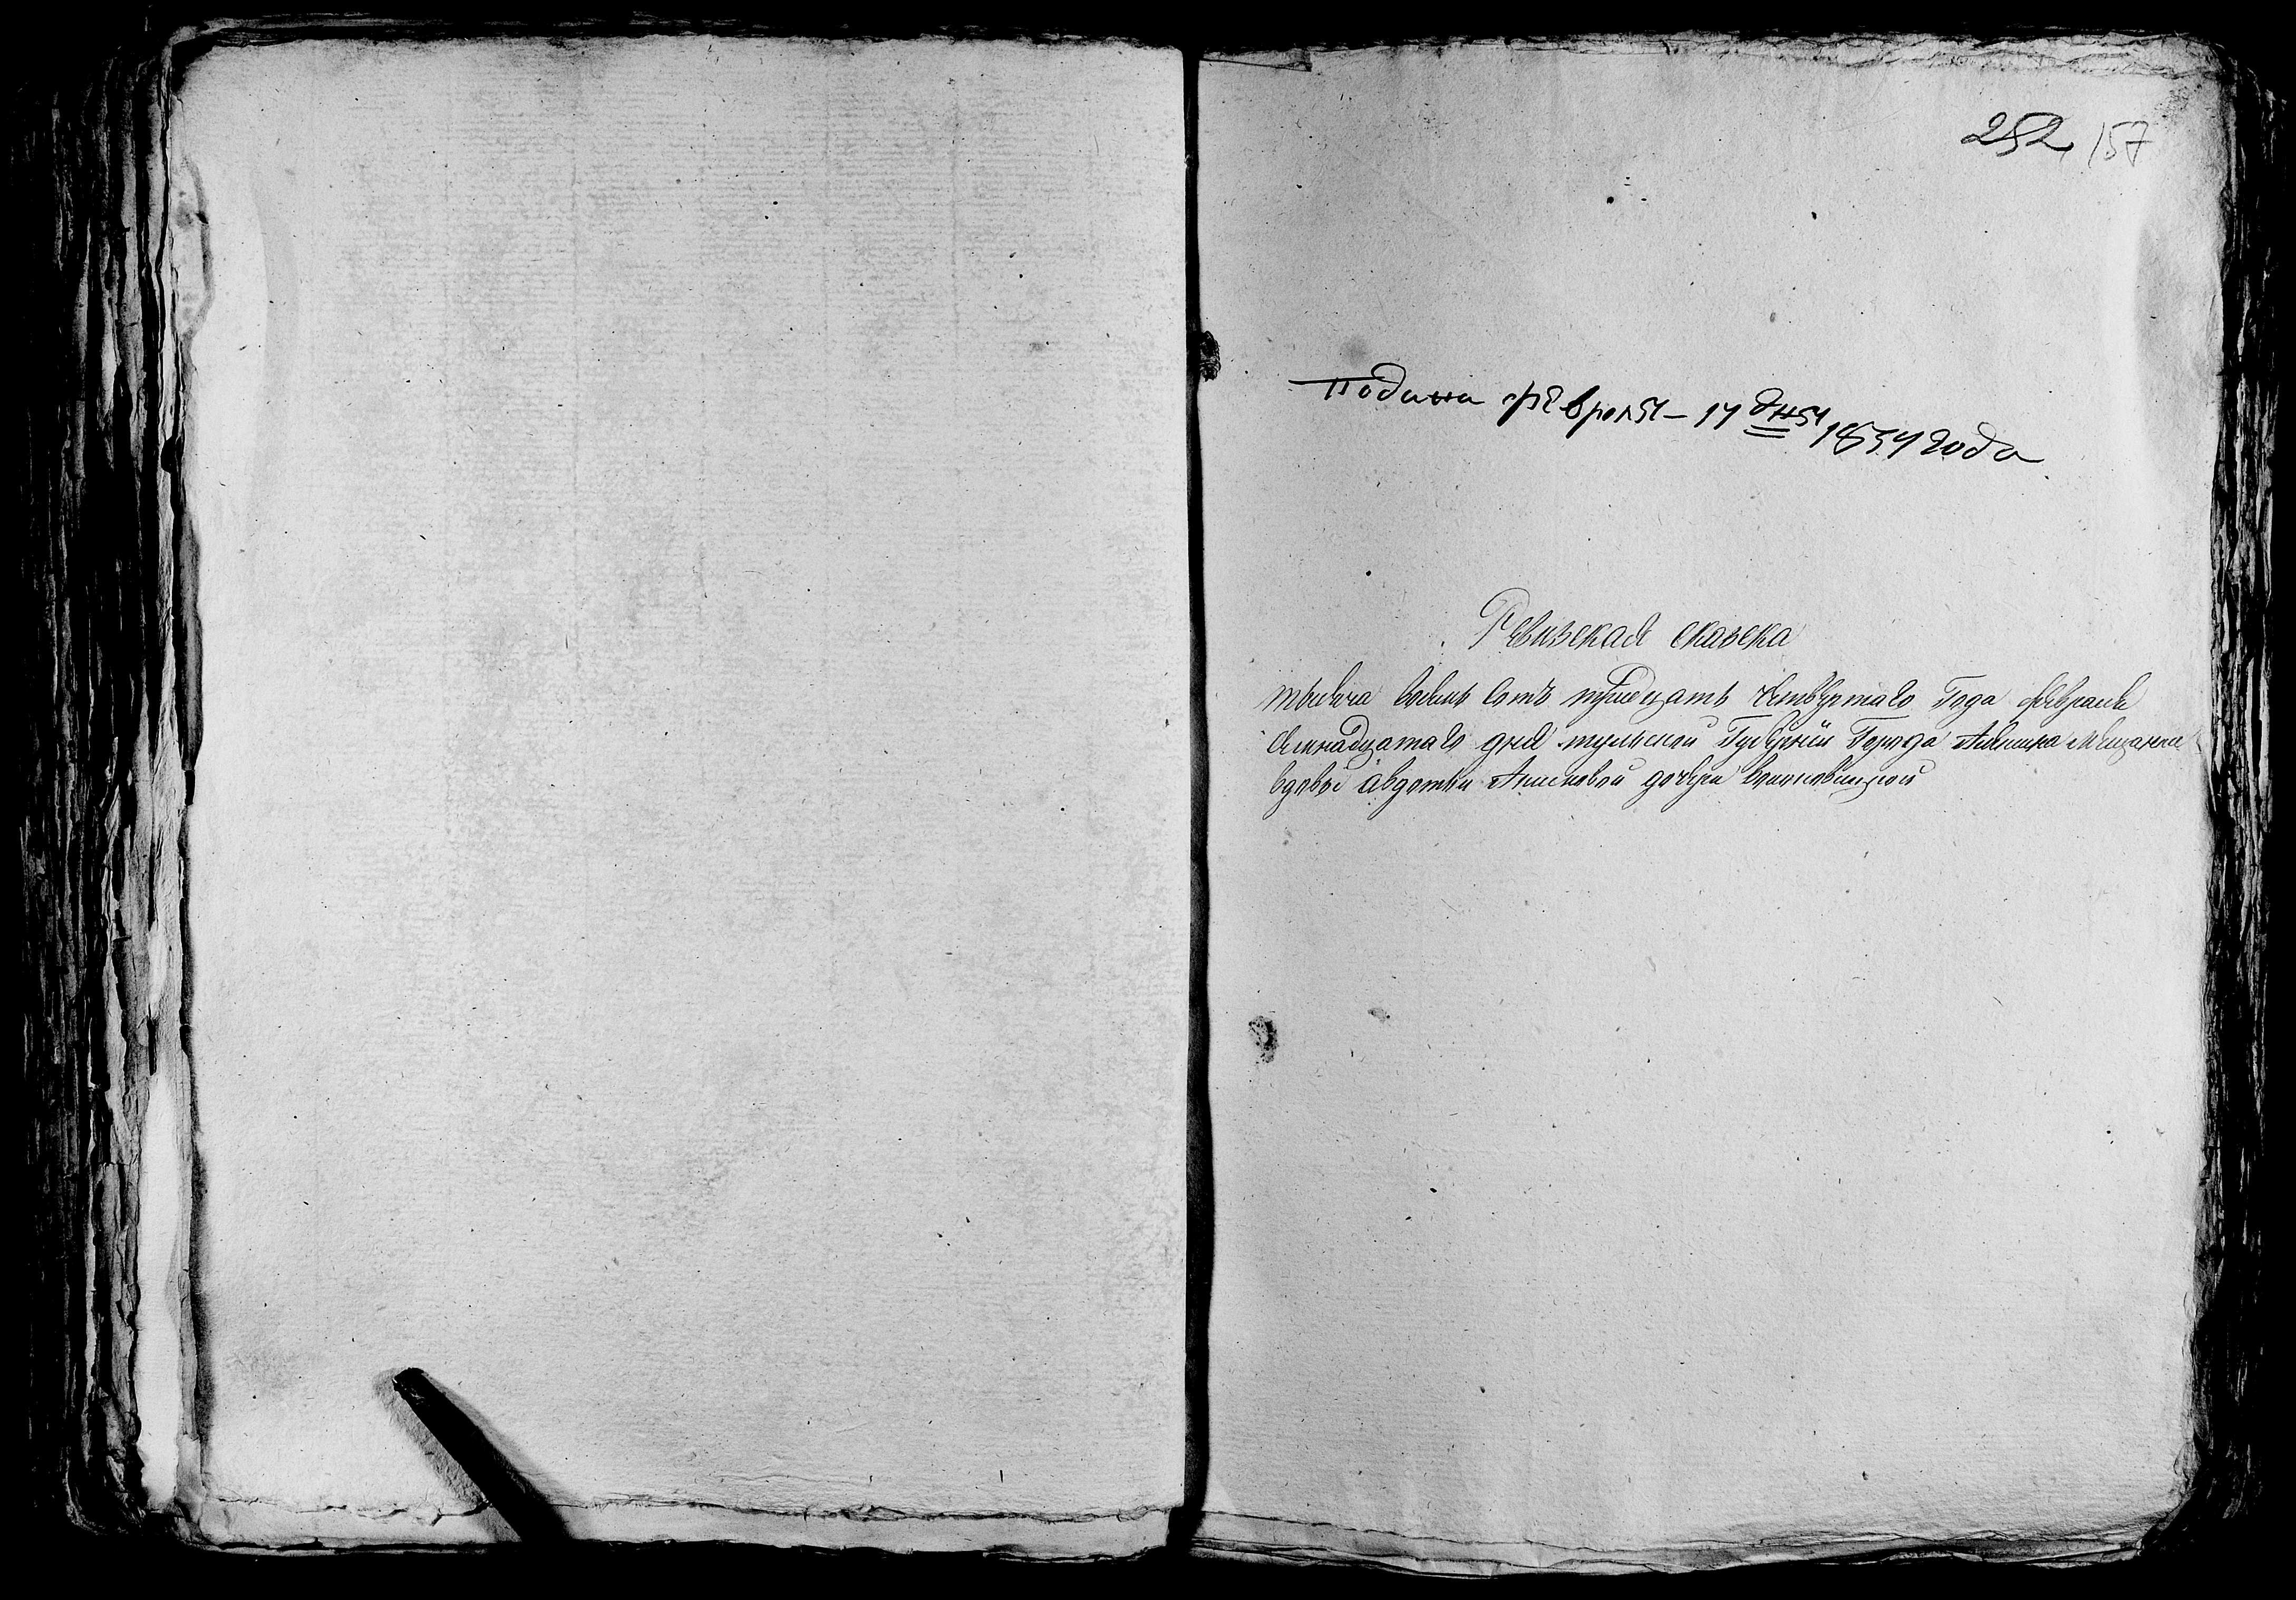 252 157
Подана февраля – 17 дня 1834 года
Ревизская сказска
тысеча восемь сотъ тридцать четвертаго Года февраля
семнадцатаго дня тульской Губерніи Города Алексина мещанки
вдовы авдотьи дочери